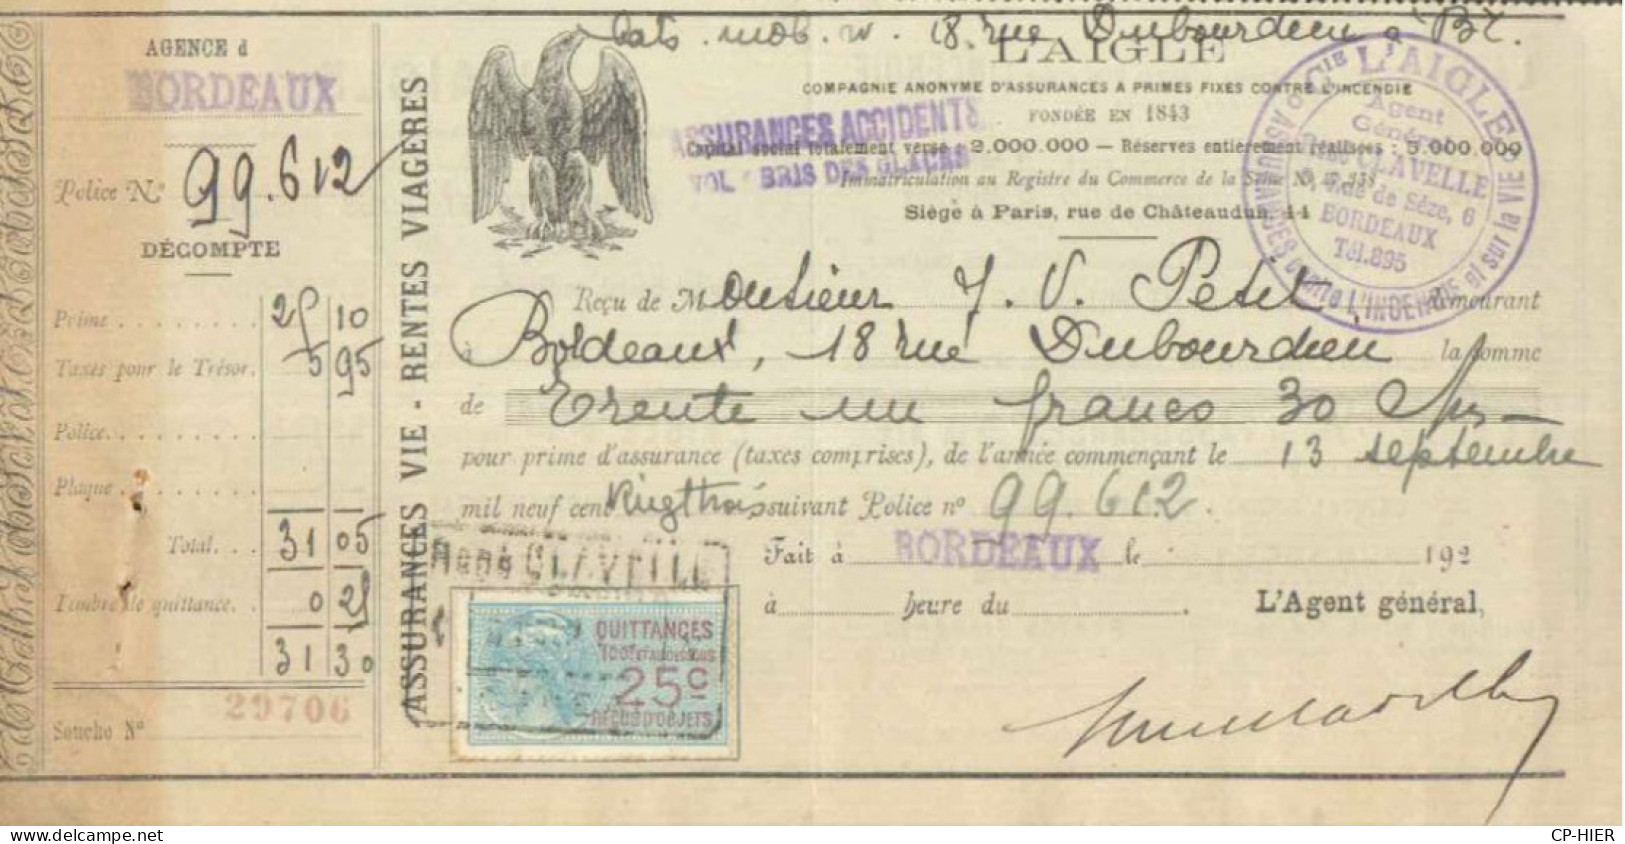 AGENCE d
BORDEAUX
Police N° 99.612
DÉCOMPTE
Prime 25 10
Taxes pour le Trésor. 5 95
Police
Plaque
Total 31 05
Timbre de quittance. 0 25
31 30
29706
Souche N°
ASSURANCES VIE - RENTES VIAGERES
mob. 18 rue Dubourdieu à Bx.
L'AIGLE
COMPAGNIE ANONYME D'ASSURANCES A PRIMES FIXES CONTRE L'INCENDIE
FONDÉE EN 1843
ASSURANCES ACCIDENTS
Capital social totalement versé : 2.000.000 — Réserves entièrement réalisées : 5.000.000
VOL - BRIS DES GLACES
Immatriculation au Registre du Commerce de la Seine N°
Siège à Paris, rue de Châteaudun, 44
Cie L'AIGLE
ASSURANCES contre L'INCENDIE et sur la VIE
Agent
Général
CLAVELLE
de Sèze, 6
BORDEAUX
Tél.895
Reçu de Monsieur J. V. Petit, demeurant
à Bordeaux, 18 rue Dubourdieu la somme
de Trente un francs 30 cms
pour prime d'assurance (taxes comprises), de l'année commençant le 13 septembre
mil neuf cent vingt trois suivant Police n° 99.612.
Fait à BORDEAUX le 192
à heure du .
L'Agent général,
René CLAVELLE
QUITTANCES
25c
REÇUS D'OBJETS
CP-HIER